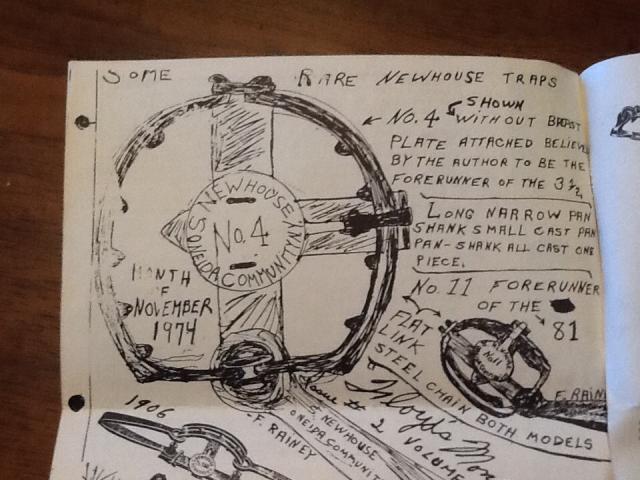 SOME RARE NEWHOUSE TRAPS
No. 4 SHOWN
WITHOUT BREAST
PLATE ATTACHED BELIEVE
BY THE AUTHOR TO BE THE
FORERUNNER OF THE 3½,
LONG NARROW PAN
SHANK SMALL CAST PAN
PAN-SHANK ALL CAST ONE
PIECE.
S. NEWHOUSE
No. 4
ONEIDA COMMUNITY N.Y.
MONTH
OF
NOVEMBER
1974
No. 11 FORERUNNER
OF THE 81
FLAT
LINK
STEEL CHAIN BOTH MODELS
No 11
F. RAIN
Issue # 2 VOLUME
Floyd's
S. NEWHOUSE
ONEIDA COMMUNIT
F. RAINEY
1906